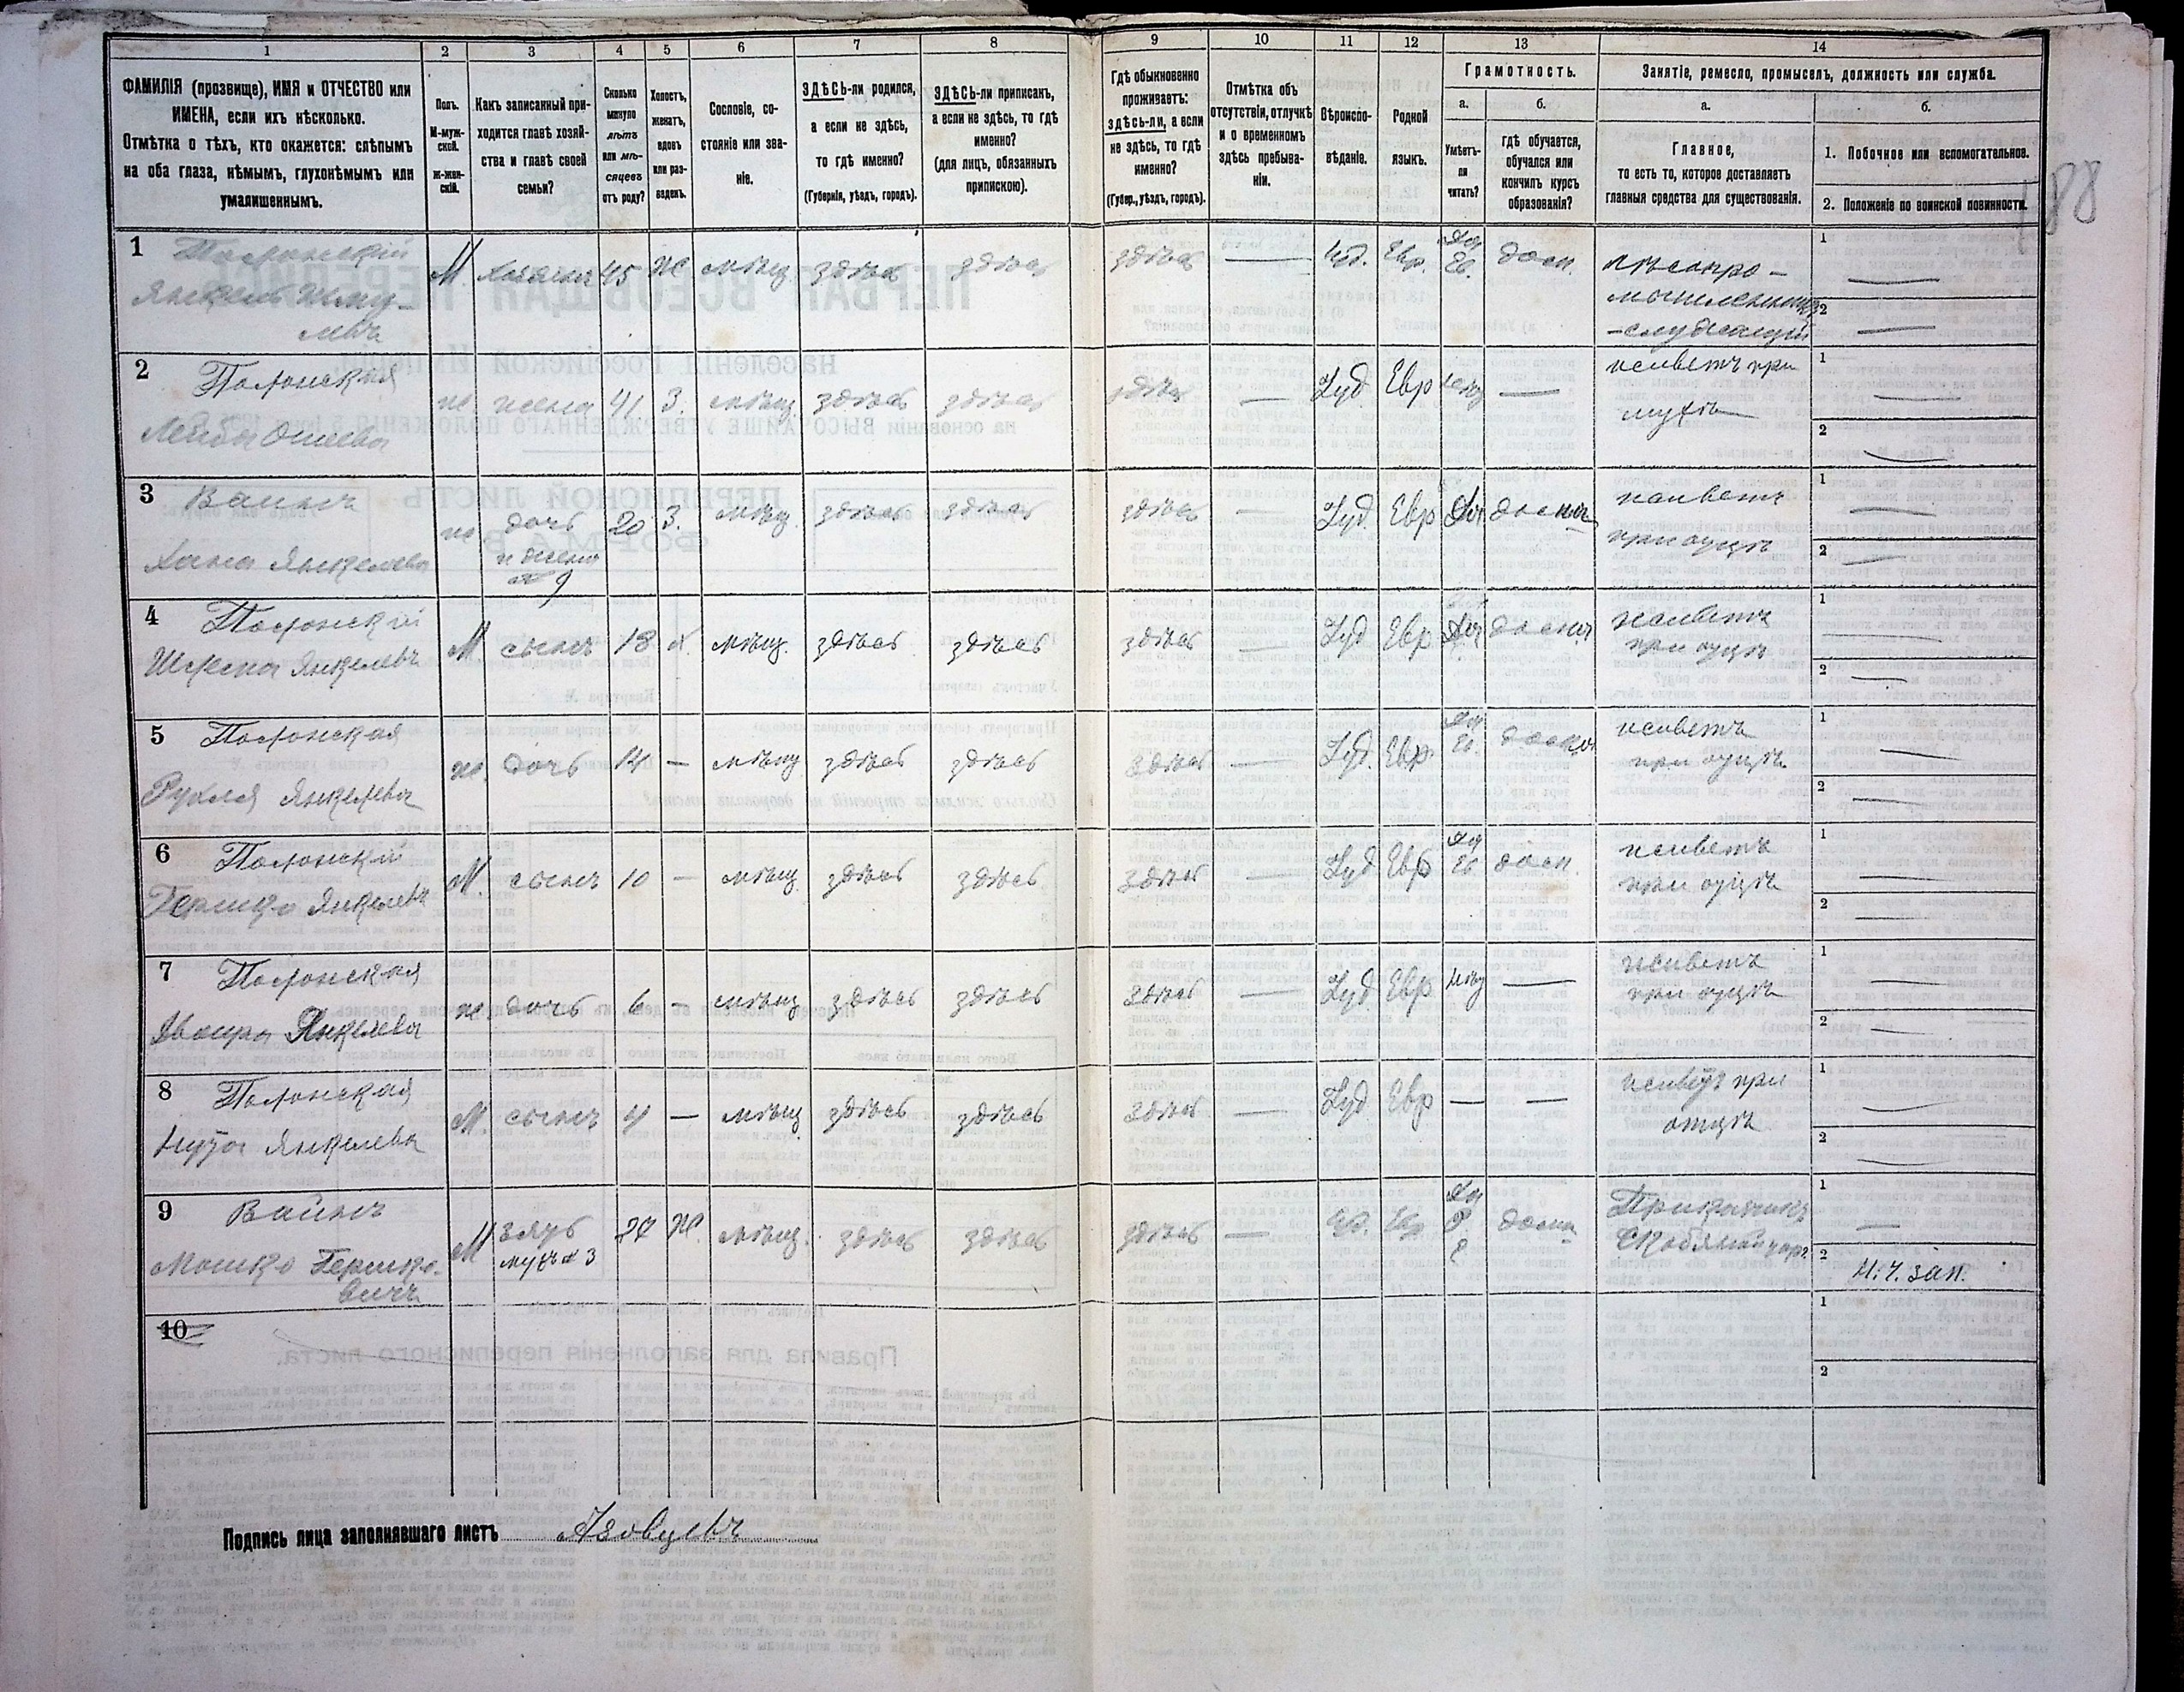 1 2 3 4 5 6 7 8 9 10 11 12 13 14
ФАМИЛІЯ (прозвище), ИМЯ и ОТЧЕСТВО или
ИМЕНА, если ихъ нѣсколько.
Отмѣтка о тѣхъ, кто окажется: слѣпымъ
на оба глаза, нѣмымъ, глухонѣмымъ или
умалишеннымъ.
Полъ.
М-муж-
ской.
Ж-жен-
скій.
Какъ записанный при-
ходится главѣ хозяй-
ства и главѣ своей
семьи?
Сколько
минуло
лѣтъ
или мѣ-
сяцевъ
отъ роду?
Холостъ,
женатъ,
вдовъ
или раз-
веденъ.
Сословіе, со-
стояніе или зва-
ніе.
ЗДѢСЬ-ли родился,
а если не здѣсь,
то гдѣ именно?
(Губернія, уѣздъ, городъ).
ЗДѢСЬ-ли приписанъ,
а если не здѣсь, то гдѣ
именно?
(для лицъ, обязанныхъ
припискою).
Гдѣ обыкновенно
проживаетъ:
здѣсь-ли, а если
не здѣсь, то гдѣ
именно?
(Губер., уѣздъ, городъ).
Отмѣтка объ
отсутствіи, отлучкѣ
и о временномъ
здѣсь пребыва-
ніи.
Вѣроиспо-
вѣданіе.
Родной
языкъ.
Грамотность.
а.
Умѣетъ-
ли
читать?
б.
гдѣ обучается,
обучался или
кончилъ курсъ
образованія?
Занятіе, ремесло, промыселъ, должность или служба.
а.
Главное,
то есть то, которое доставляетъ
главныя средства для существованія.
б.
1. Побочное или вспомогательное.
2. Положеніе по воинской повинности.
1 Полонскій
Янкель Шму-
левъ
М. хозяинъ 45 Ж мѣщ. здѣсь здѣсь здѣсь — Іуд. Евр. Да Ев. дом.
лѣсопро-
мышленникъ
-служащій
1 —
2 —
2 Полонская
Лейба Ошева
ж. жена 41 З. мѣщ. здѣсь здѣсь здѣсь — Іуд Евр —
живетъ при
мужѣ
1 —
2 —
3 Вайнъ
Хана Янкелева
ж дочь
и жена
№ 9
20 З. мѣщ. здѣсь здѣсь здѣсь — Іуд. Евр Да дома
живетъ
при отцѣ
1 —
2 —
4 Полонскій
Янкелевъ
М сынъ 18 х. мѣщ. здѣсь здѣсь здѣсь Іуд Евр Да дома
живетъ
при отцѣ
1 —
2 —
5 Полонская
Рухля Янкелева
ж. дочь 14 — мѣщ здѣсь здѣсь здѣсь — Іуд. Евр. Да Ев. дома
живетъ
при отцѣ
1 —
2 —
6 Полонскій
Гершко Янкелевъ
М. сынъ 10 — мѣщ здѣсь здѣсь здѣсь — Іуд Евр Да Ев дом.
живетъ
при отцѣ
1 —
2 —
7 Полонская
Двойра Янкелева
ж дочь 6 — мѣщ здѣсь здѣсь здѣсь — Іуд. Евр —
живетъ
при отцѣ
1 —
2 —
8 Полонская
Нута Янкелевъ
М. сынъ 4 — мѣщ здѣсь здѣсь здѣсь — Іуд. Евр — —
живетъ при
отцѣ
1 —
2 —
9 Вайнъ
Мошко Гершко-
вичъ
М зять
мужъ № 3
Ж. мѣщ. здѣсь здѣсь здѣсь — Іуд. Евр Да Р. дома
Прикащикъ
1 —
2 Н. Ч. зап.
10
1
2
Подпись лица заполнявшаго листъ